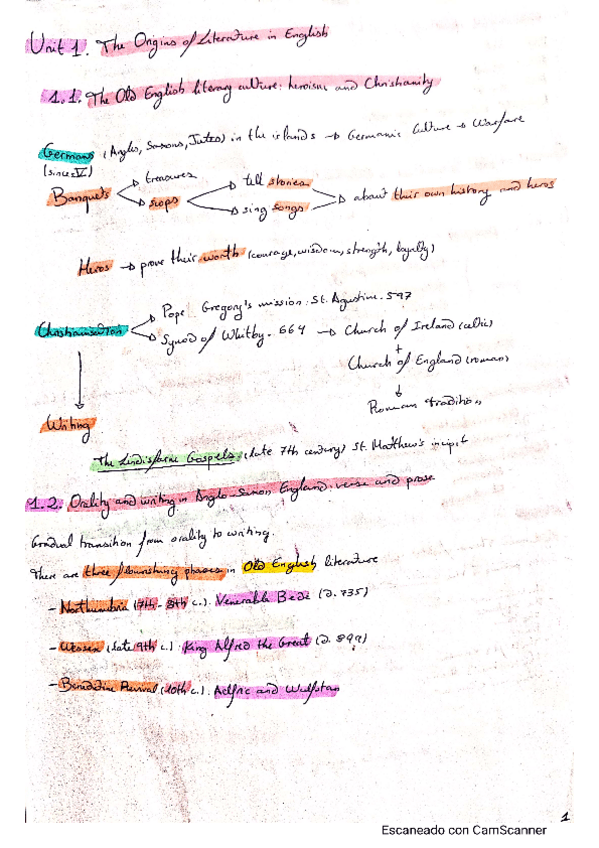 Unit 1. The Origins of Literature in English
1.1. The Old English literary culture: heroism and Christianity
Germans (Anglo, Saxons, Jutes) in the islands → Germanic Culture → Warfare
(since V)
Banquets treasures
scops tell stories
sing songs about their own history and heros
Heros → prove their worth (courage, wisdom, strength, loyalty)
Christianisation Pope Gregory's mission: St. Agustine. 597
Synod of Whitby. 664 → Church of Ireland (celtic)
+
Church of England (roman)
↓
Roman tradition
Writing
The Lindisfarne Gospels (late 7th century) St. Matthew's incipit
1.2. Orality and writing in Anglo-Saxon England: verse and prose
Gradual transition from orality to writing
There are three flourishing phases in Old English literature
- Northumbria (7th-8th c.). Venerable Bede (d. 735)
- Wessex (late 9th c.). King Alfred the Great (d. 899)
- Benedictine Revival (10th c.). Aelfric and Wulfstan
1
Escaneado con CamScanner